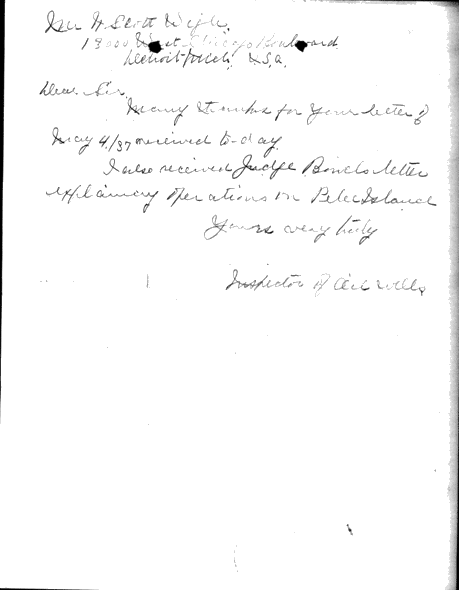 Mr W Scott
West Chicago Boulevard
Detroit Mich, U.S.a.
Dear Sir,
Many thanks for your letter of
May 4/37 received to-day
I also received Judge Bonds letter
explaining operations on Pelee Island
Yours very truly
Inspector of Oil wells